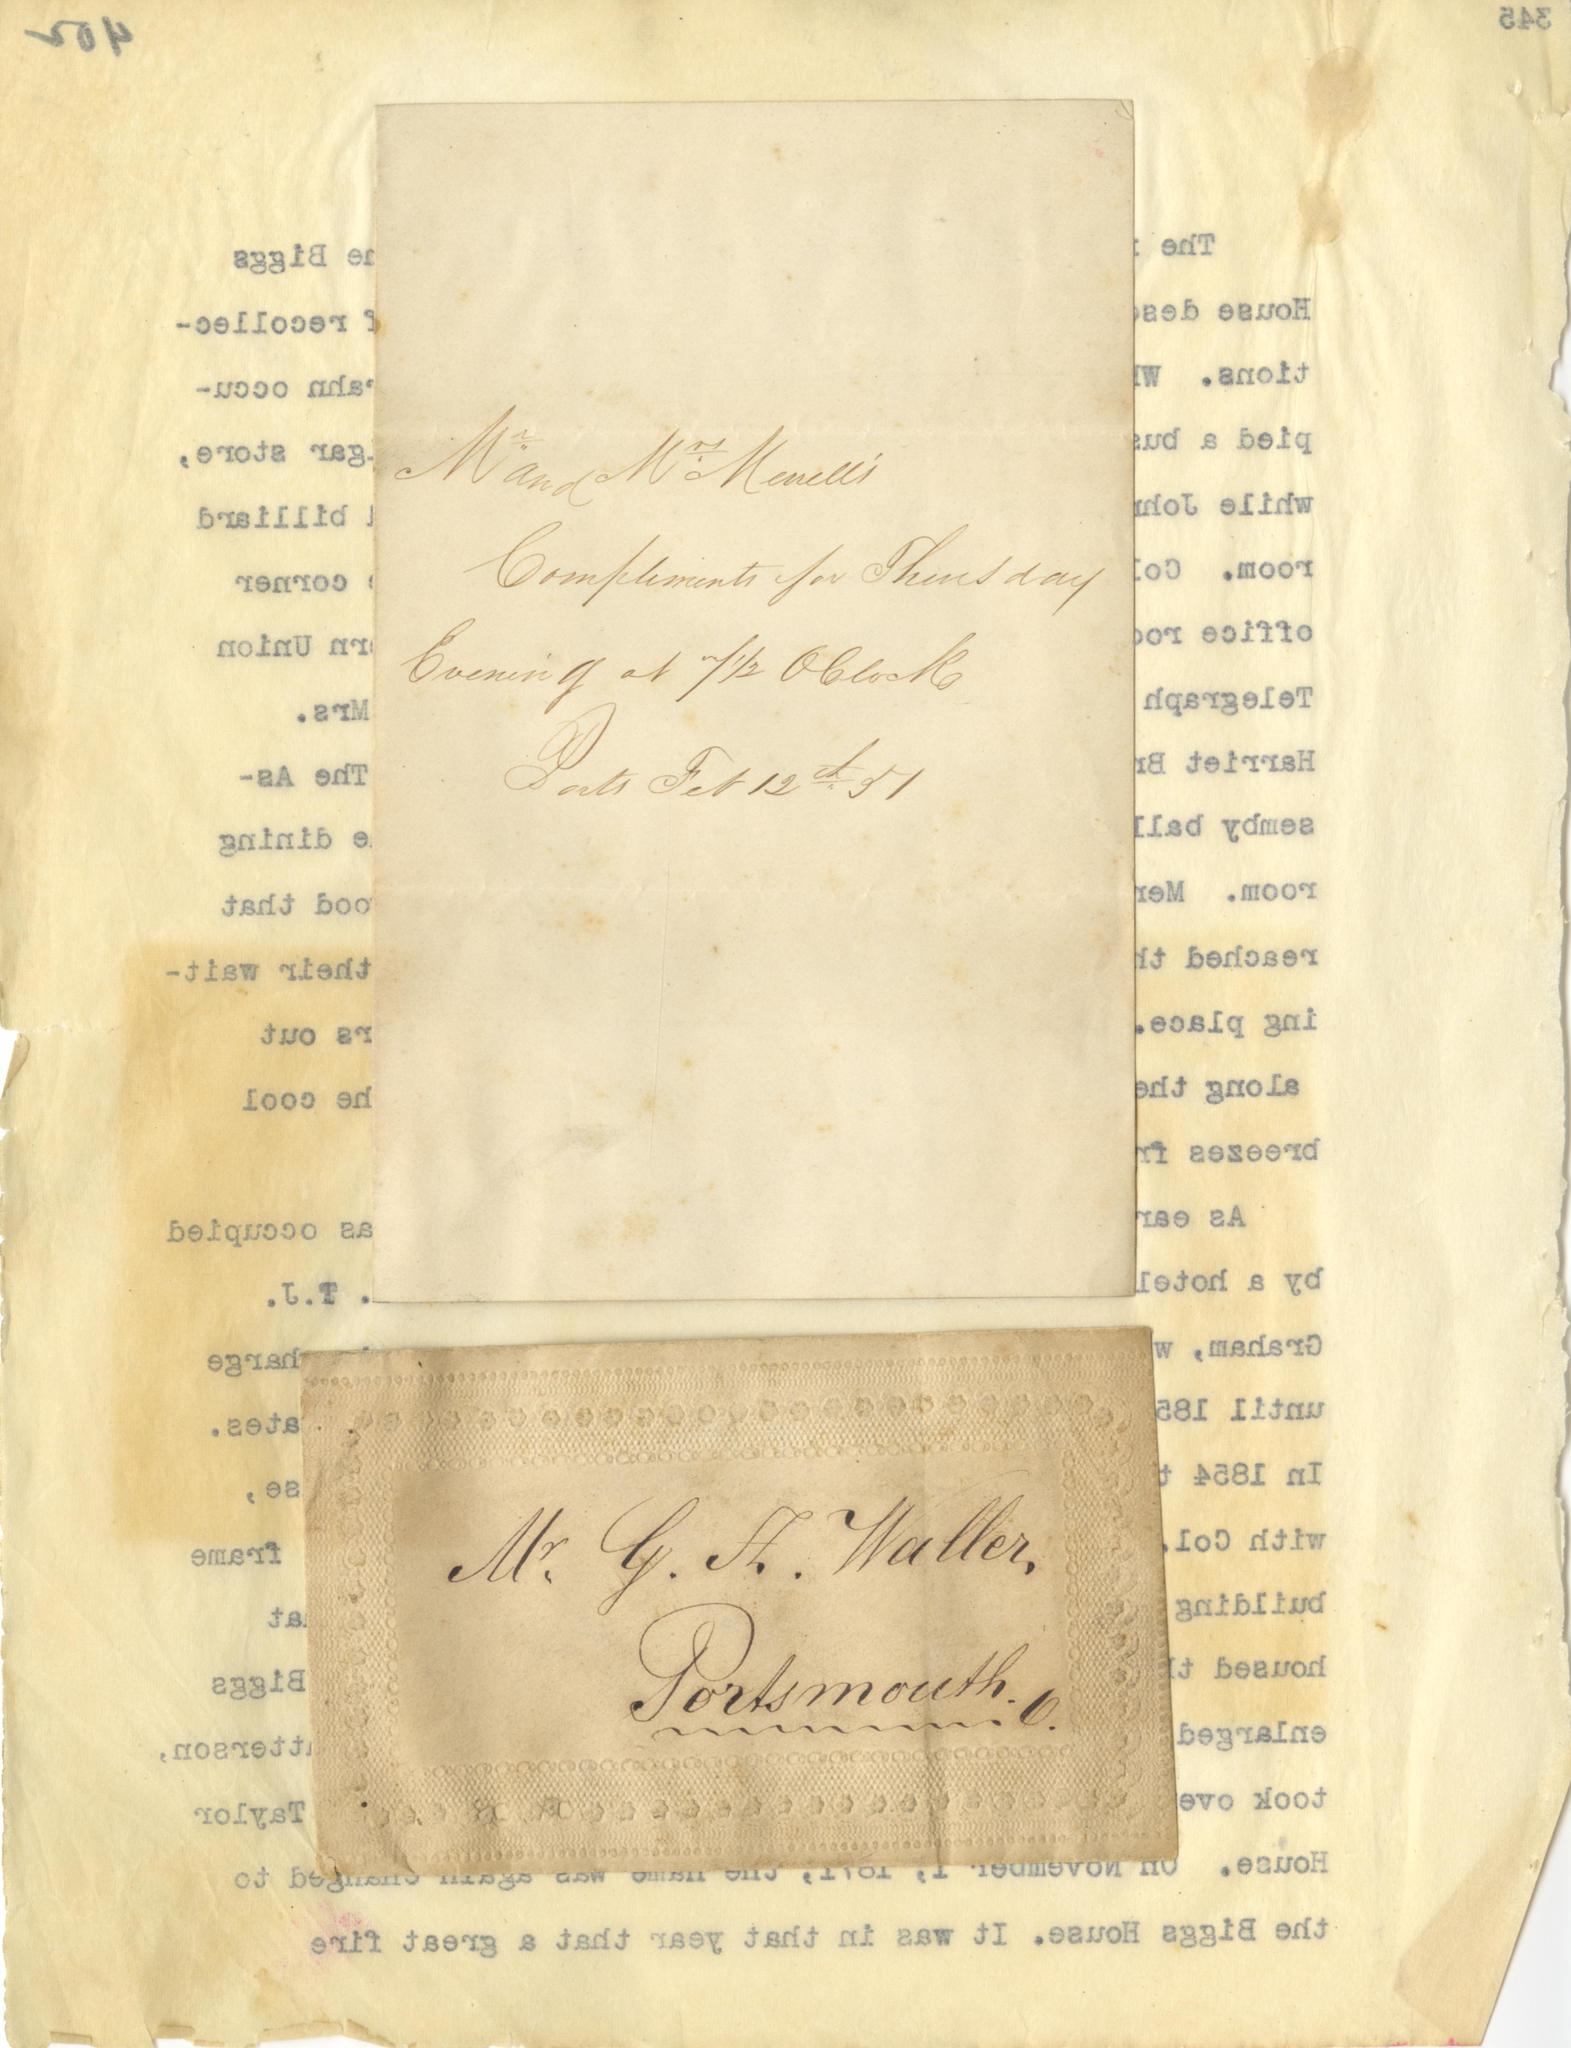 402
345
Mr and Mrs Merrell's
Compliments for Thursday
Evening at 7 1/2 OClock
Ports Feb 12th 51
Mr. G. A. Waller,
Portsmouth. O.
The
he Biggs
House desc
f recollec-
tions. Wh
rahn occu-
pied a bus
igar store,
while John
d billiard
room. Col
e corner
office roo
rn Union
Telegraph
Mrs.
Harriet Br
The As-
semby ball
e dining
room. Mer
ood that
reached th
their wait-
ing place.
rs out
along the
he cool
breezes fr
As ear
as occupied
by a hotel
. T.J.
Graham, w
charge
until 185
ates.
In 1854 t
se,
with Col.
frame
building
at
housed th
Biggs
enlarged
tterson,
took ove
Taylor
House. On November 1, 1871, the name was again changed to
the Biggs House. It was in that year that a great fire